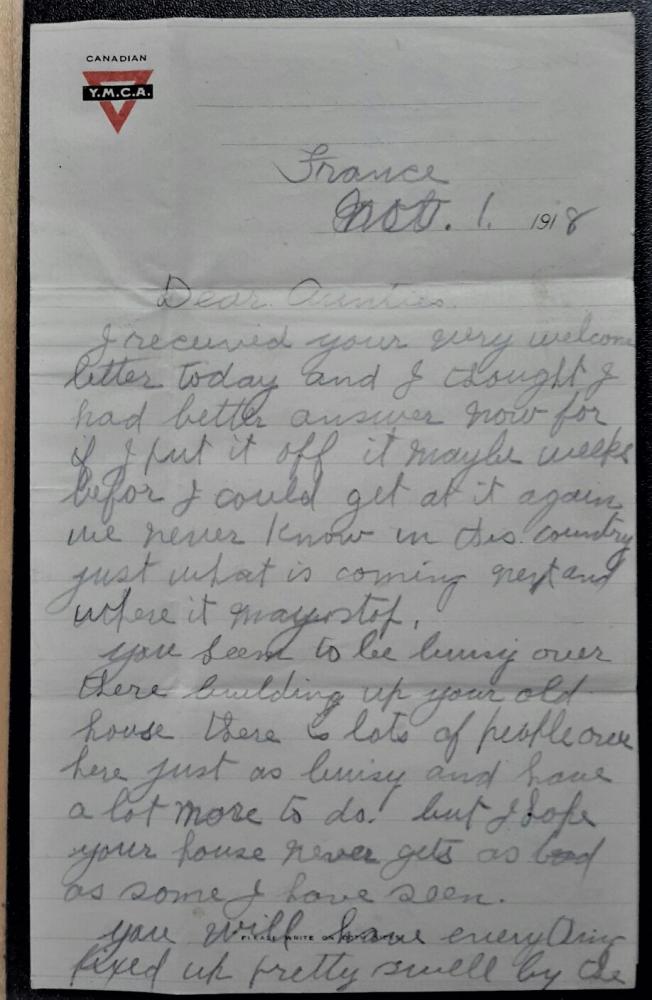 CANADIAN
Y.M.C.A.
France
Nov. 1. 1918
Dear Aunties.
I received your very welcome
letter today and I thought I
had better answer now for
if I put it off it maybe weeks
befor I could get at it again
we never know in this country
just what is coming next and
where it may stop.
you seem to be buisy over
there building up your old
house there is lots of people over
here just as buisy and have
a lot more to do. but I hope
your house never gets as bad
as some I have seen.
you will have everything
PLEASE WRITE ON
fixed up pretty swell by the